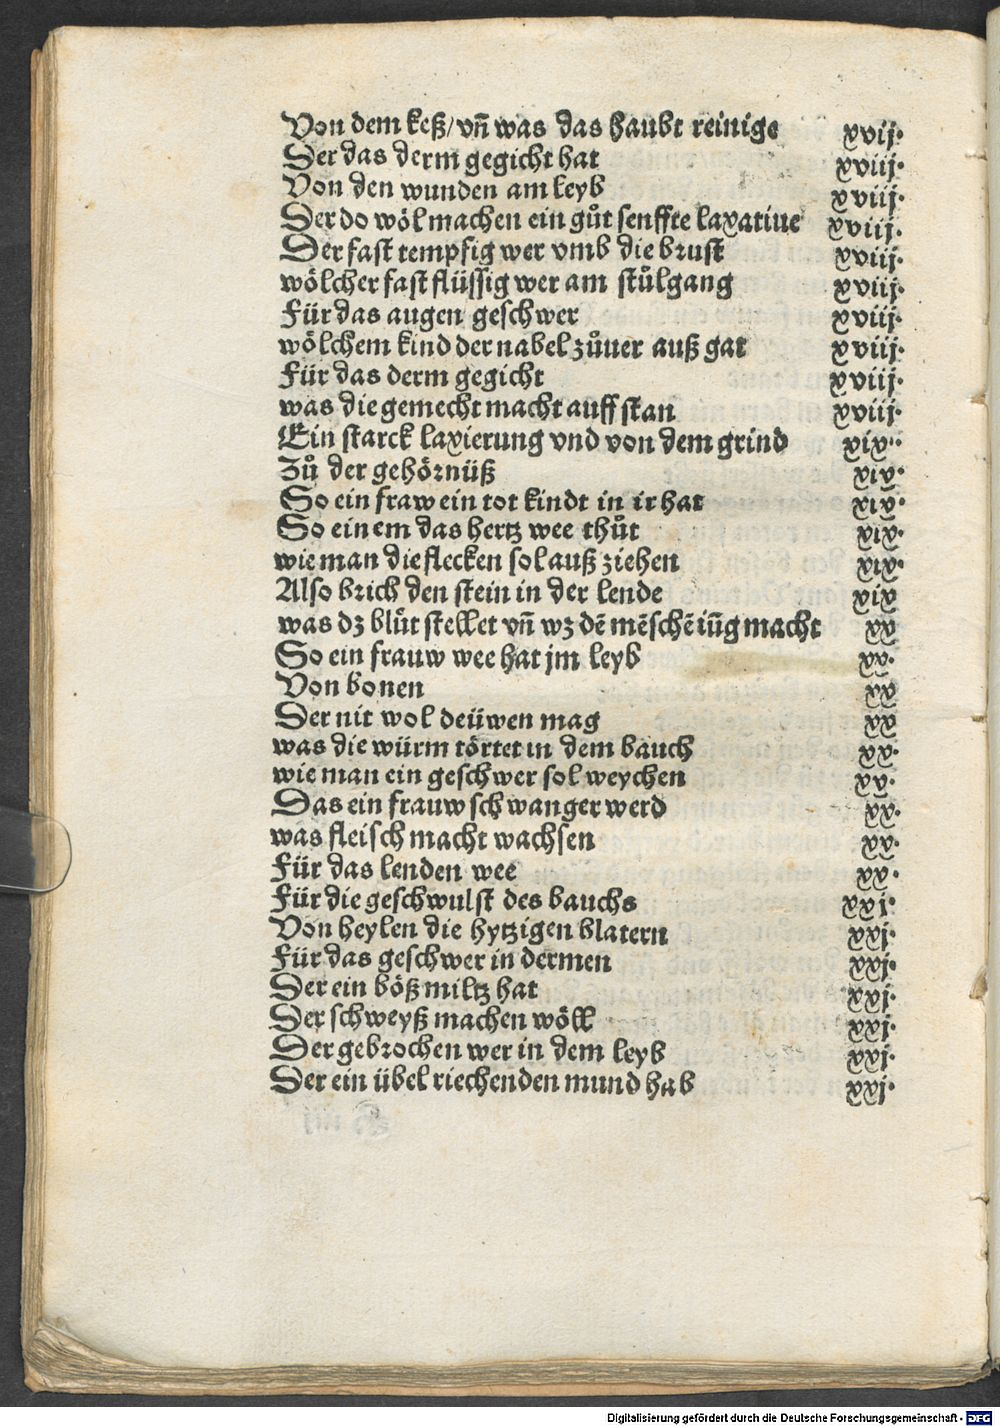 Von dem keß/ vñ was das haubt reinige xvij.
Der das derm gegicht hat xviij.
Von den wunden am leyb xviij.
Der do wöl machen ein gůt senffte laxatiue xviij.
Der fast tempfig wer vmb die brust xviij.
wölcher fast flüssig wer am stůlgang xviij.
Für das augen geschwer xviij.
wölchem kind der nabel zůuer auß gat xviij.
Für das derm gegicht xviij.
was die gemecht macht auff stan xviij.
Ein starck laxierung vnd von dem grind xix.
Zů der gehörnüß xix.
So ein fraw ein tot kindt in ir hat xix.
So einem das hertz wee thůt xix.
wie man die flecken sol auß ziehen xix.
Also brich den stein in der lende xix
was dz blůt stellet vñ wz dē mēschē iūg macht xx
So ein frauw wee hat jm leyb xx.
Von bonen xx
Der nit wol deüwen mag xx
was die würm törtet in dem bauch xx.
wie man ein geschwer sol weychen xx.
Das ein frauw schwanger werd xx.
was fleisch macht wachsen xx.
Für das lenden wee xx.
Für die geschwulst des bauchs xxj.
Von heylen die hytzigen blatern xxj.
Für das geschwer in dermen xxj.
Der ein böß miltz hat xxj.
Der schweyß machen wöll xxj.
Der gebrochen wer in dem leyb xxj.
Der ein übel riechenden mund hab xxj.
Digitalisierung gefördert durch die Deutsche Forschungsgemeinschaft - DFG